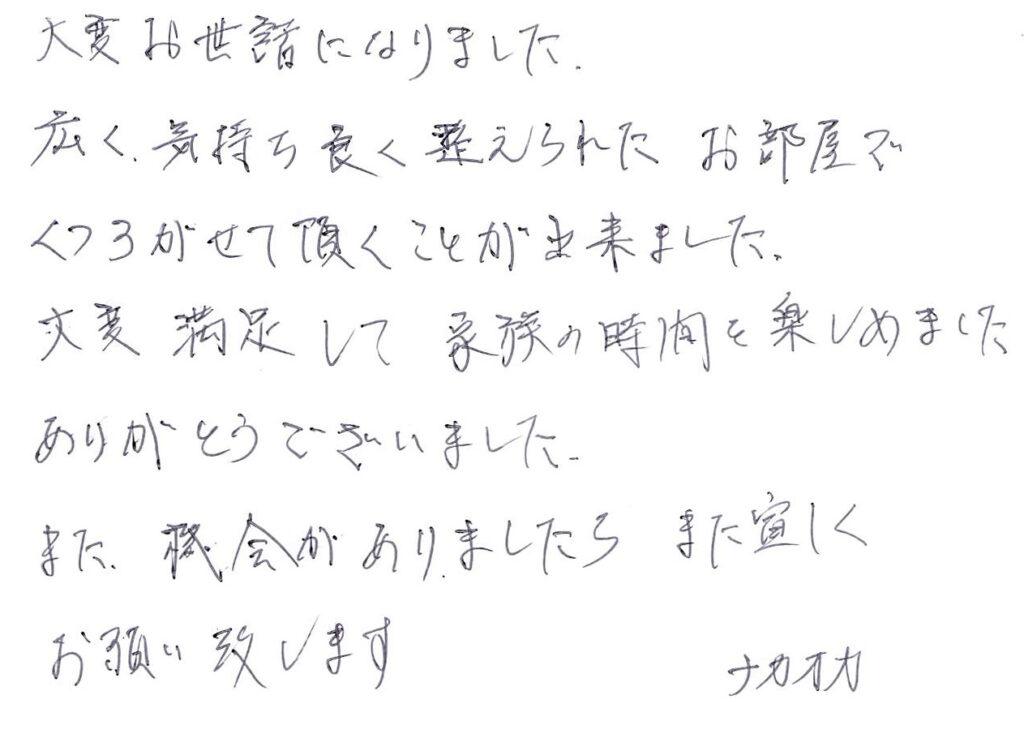 大変お世話になりました.
広く、気持ち良く整えられた お部屋で
くつろがせて頂くことが出来ました.
大変 満足して 家族の時間を楽しめました
ありがとうございました.
また、機会がありましたら また宜しく
お願い致します ナカオカ